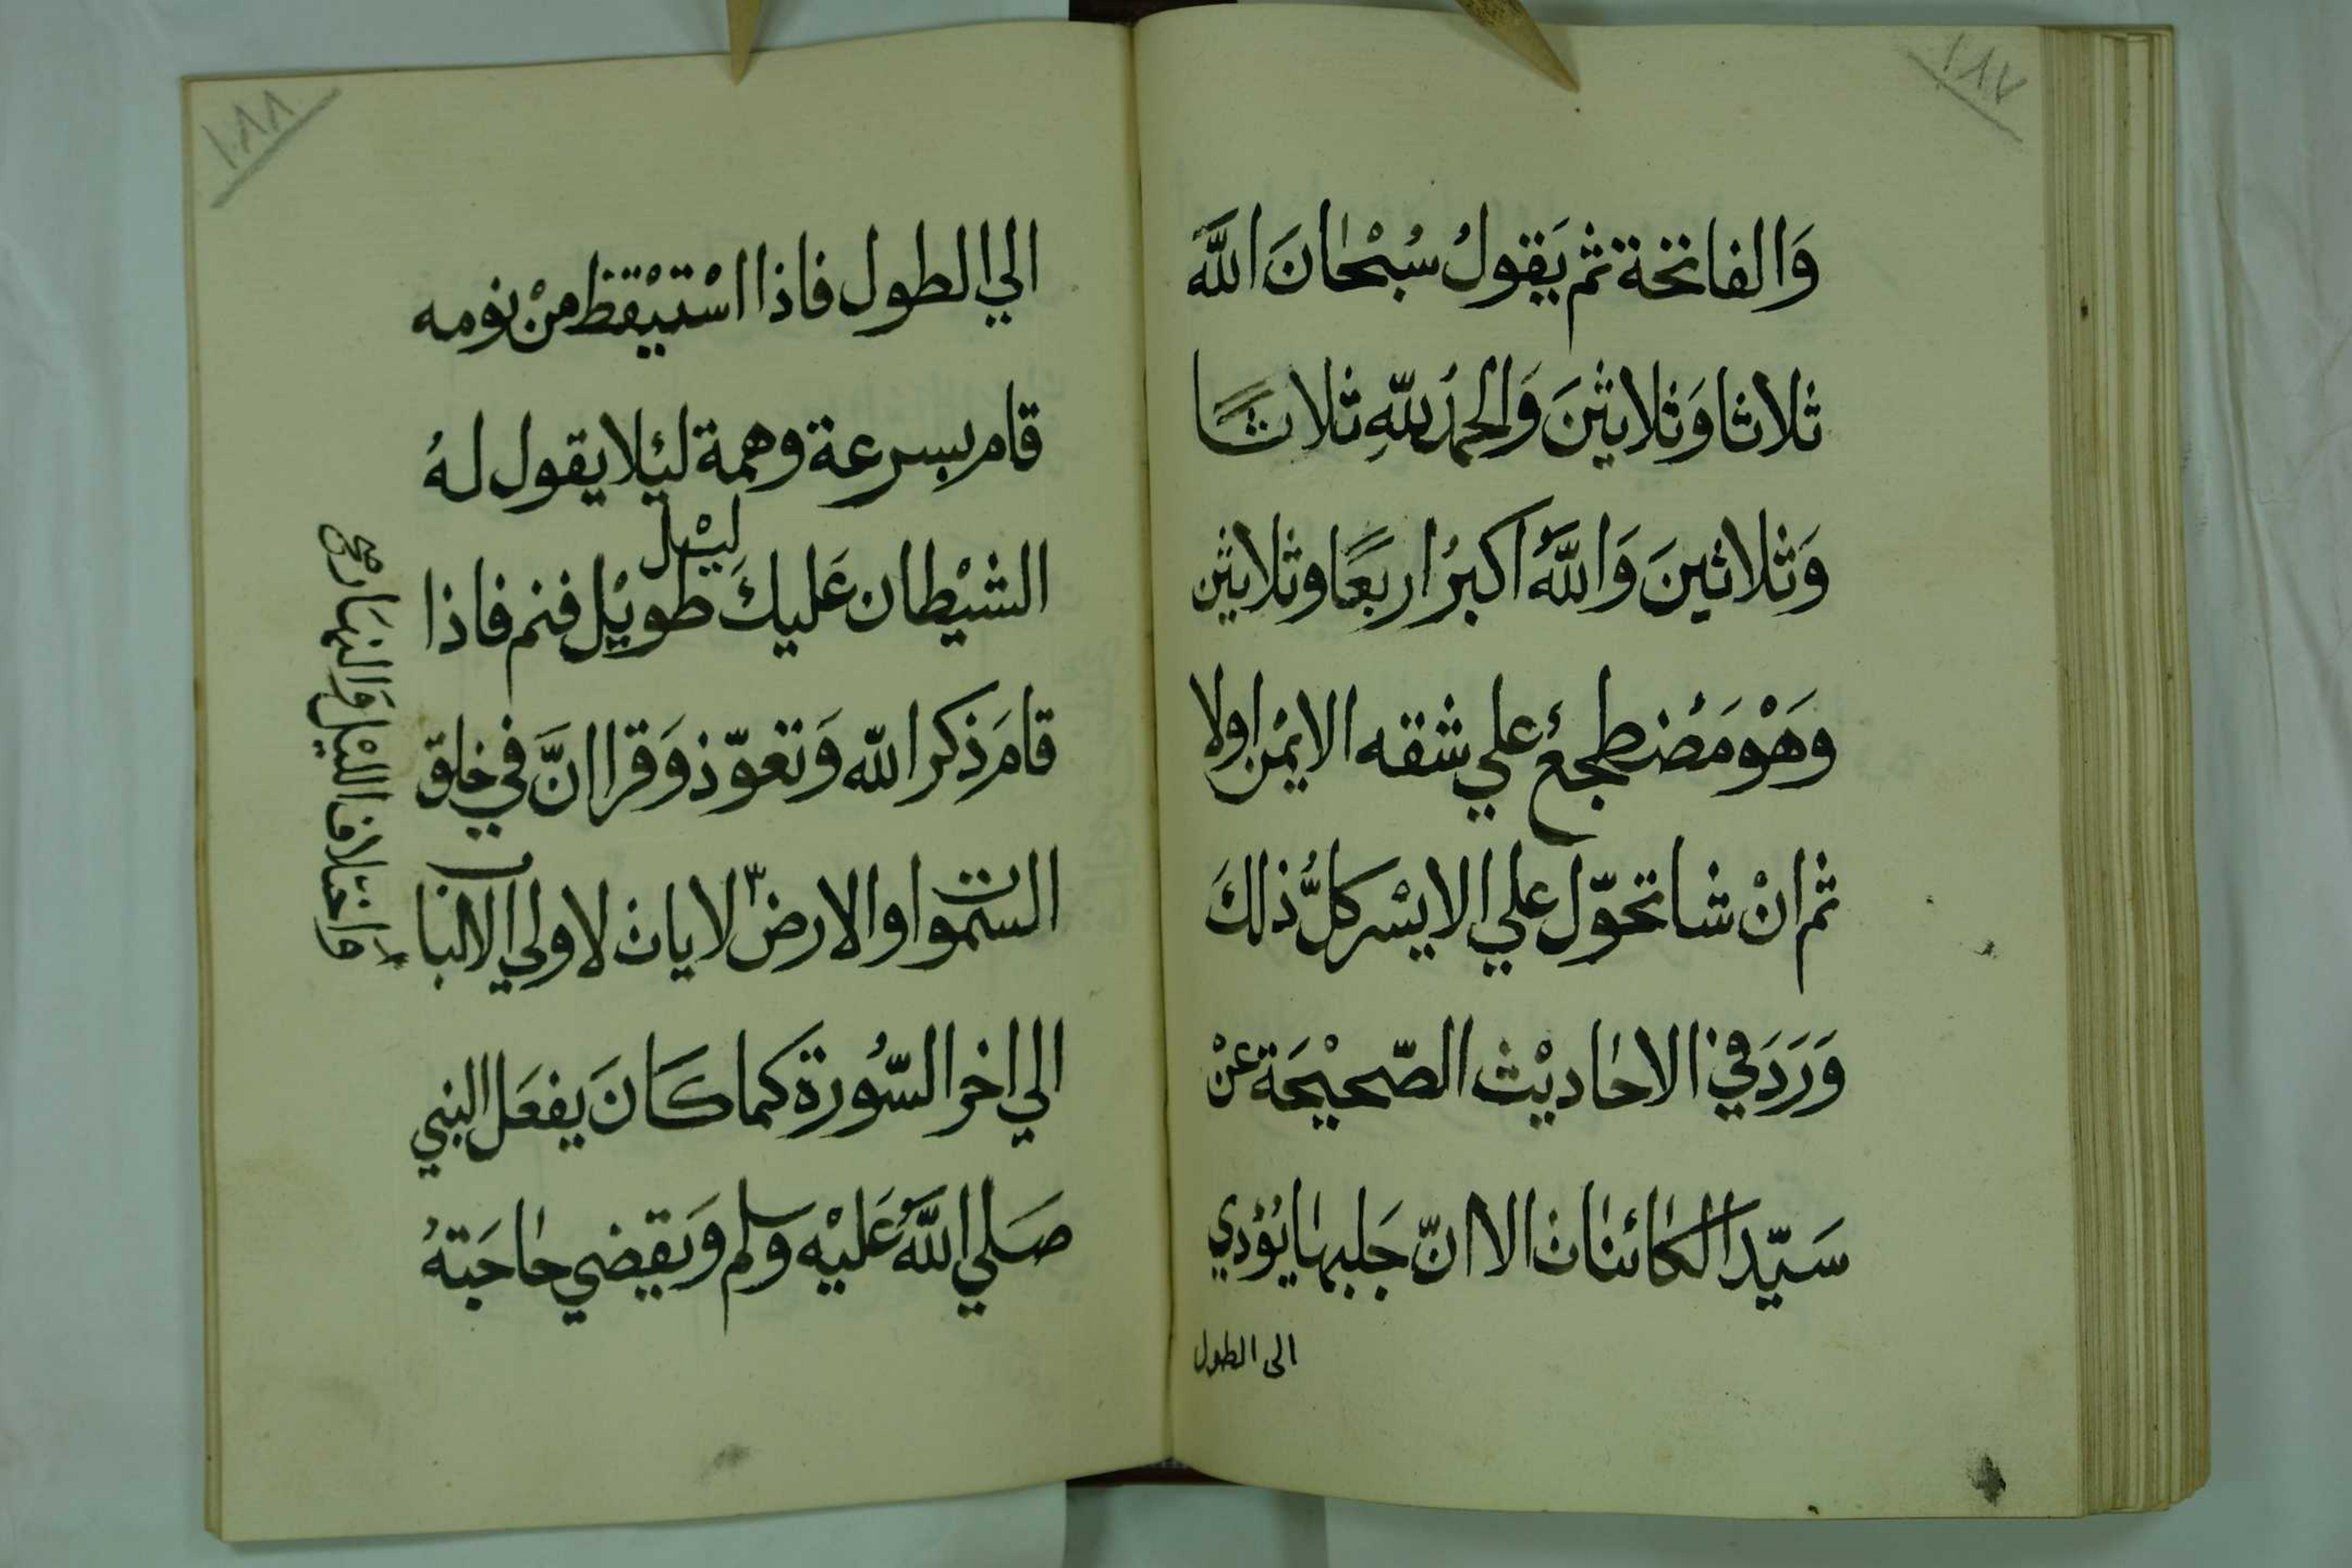 ١٨٧
وَالفاتحة ثم يَقولُ سُبْحانَ اللَّه
ثلاثا وَثلاثينَ وَالحمدُ للّهِ ثلاثًا
وَثلاثينَ وَاللَّهُ اكبرُ اربعًا وثلاثين
وَهْوَ مَضطجعُ علي شقه الايمْن اولا
ثم انْ شا تحوّل علي الايسْر كلُّ ذلكَ
وَرَدَ في الاحاديْث الصّحيْحَة عنْ
سَيّد الكائنات الا انّ جَلبها يُؤدي
الى الطول
١٨٨
الي الطول فاذا اسْتيْقظ منْ نومه
قام بسرعة وهمة لئلا يقول لهُ
الشيْطان عَليكَ ليْل طويْل فنم فاذا
قامَ ذكر اللّه وَتعوّذ وَقرا انَّ في خلق
السّموات والارض لايات لاولي الالباب
الي اخر السُّورة كما كانَ يفعَل النبي
صَلي اللَّهُ عَليْه وسلم وَيقضي حاجَتهُ
وَاختلاف الليْل وَالنهَار صح